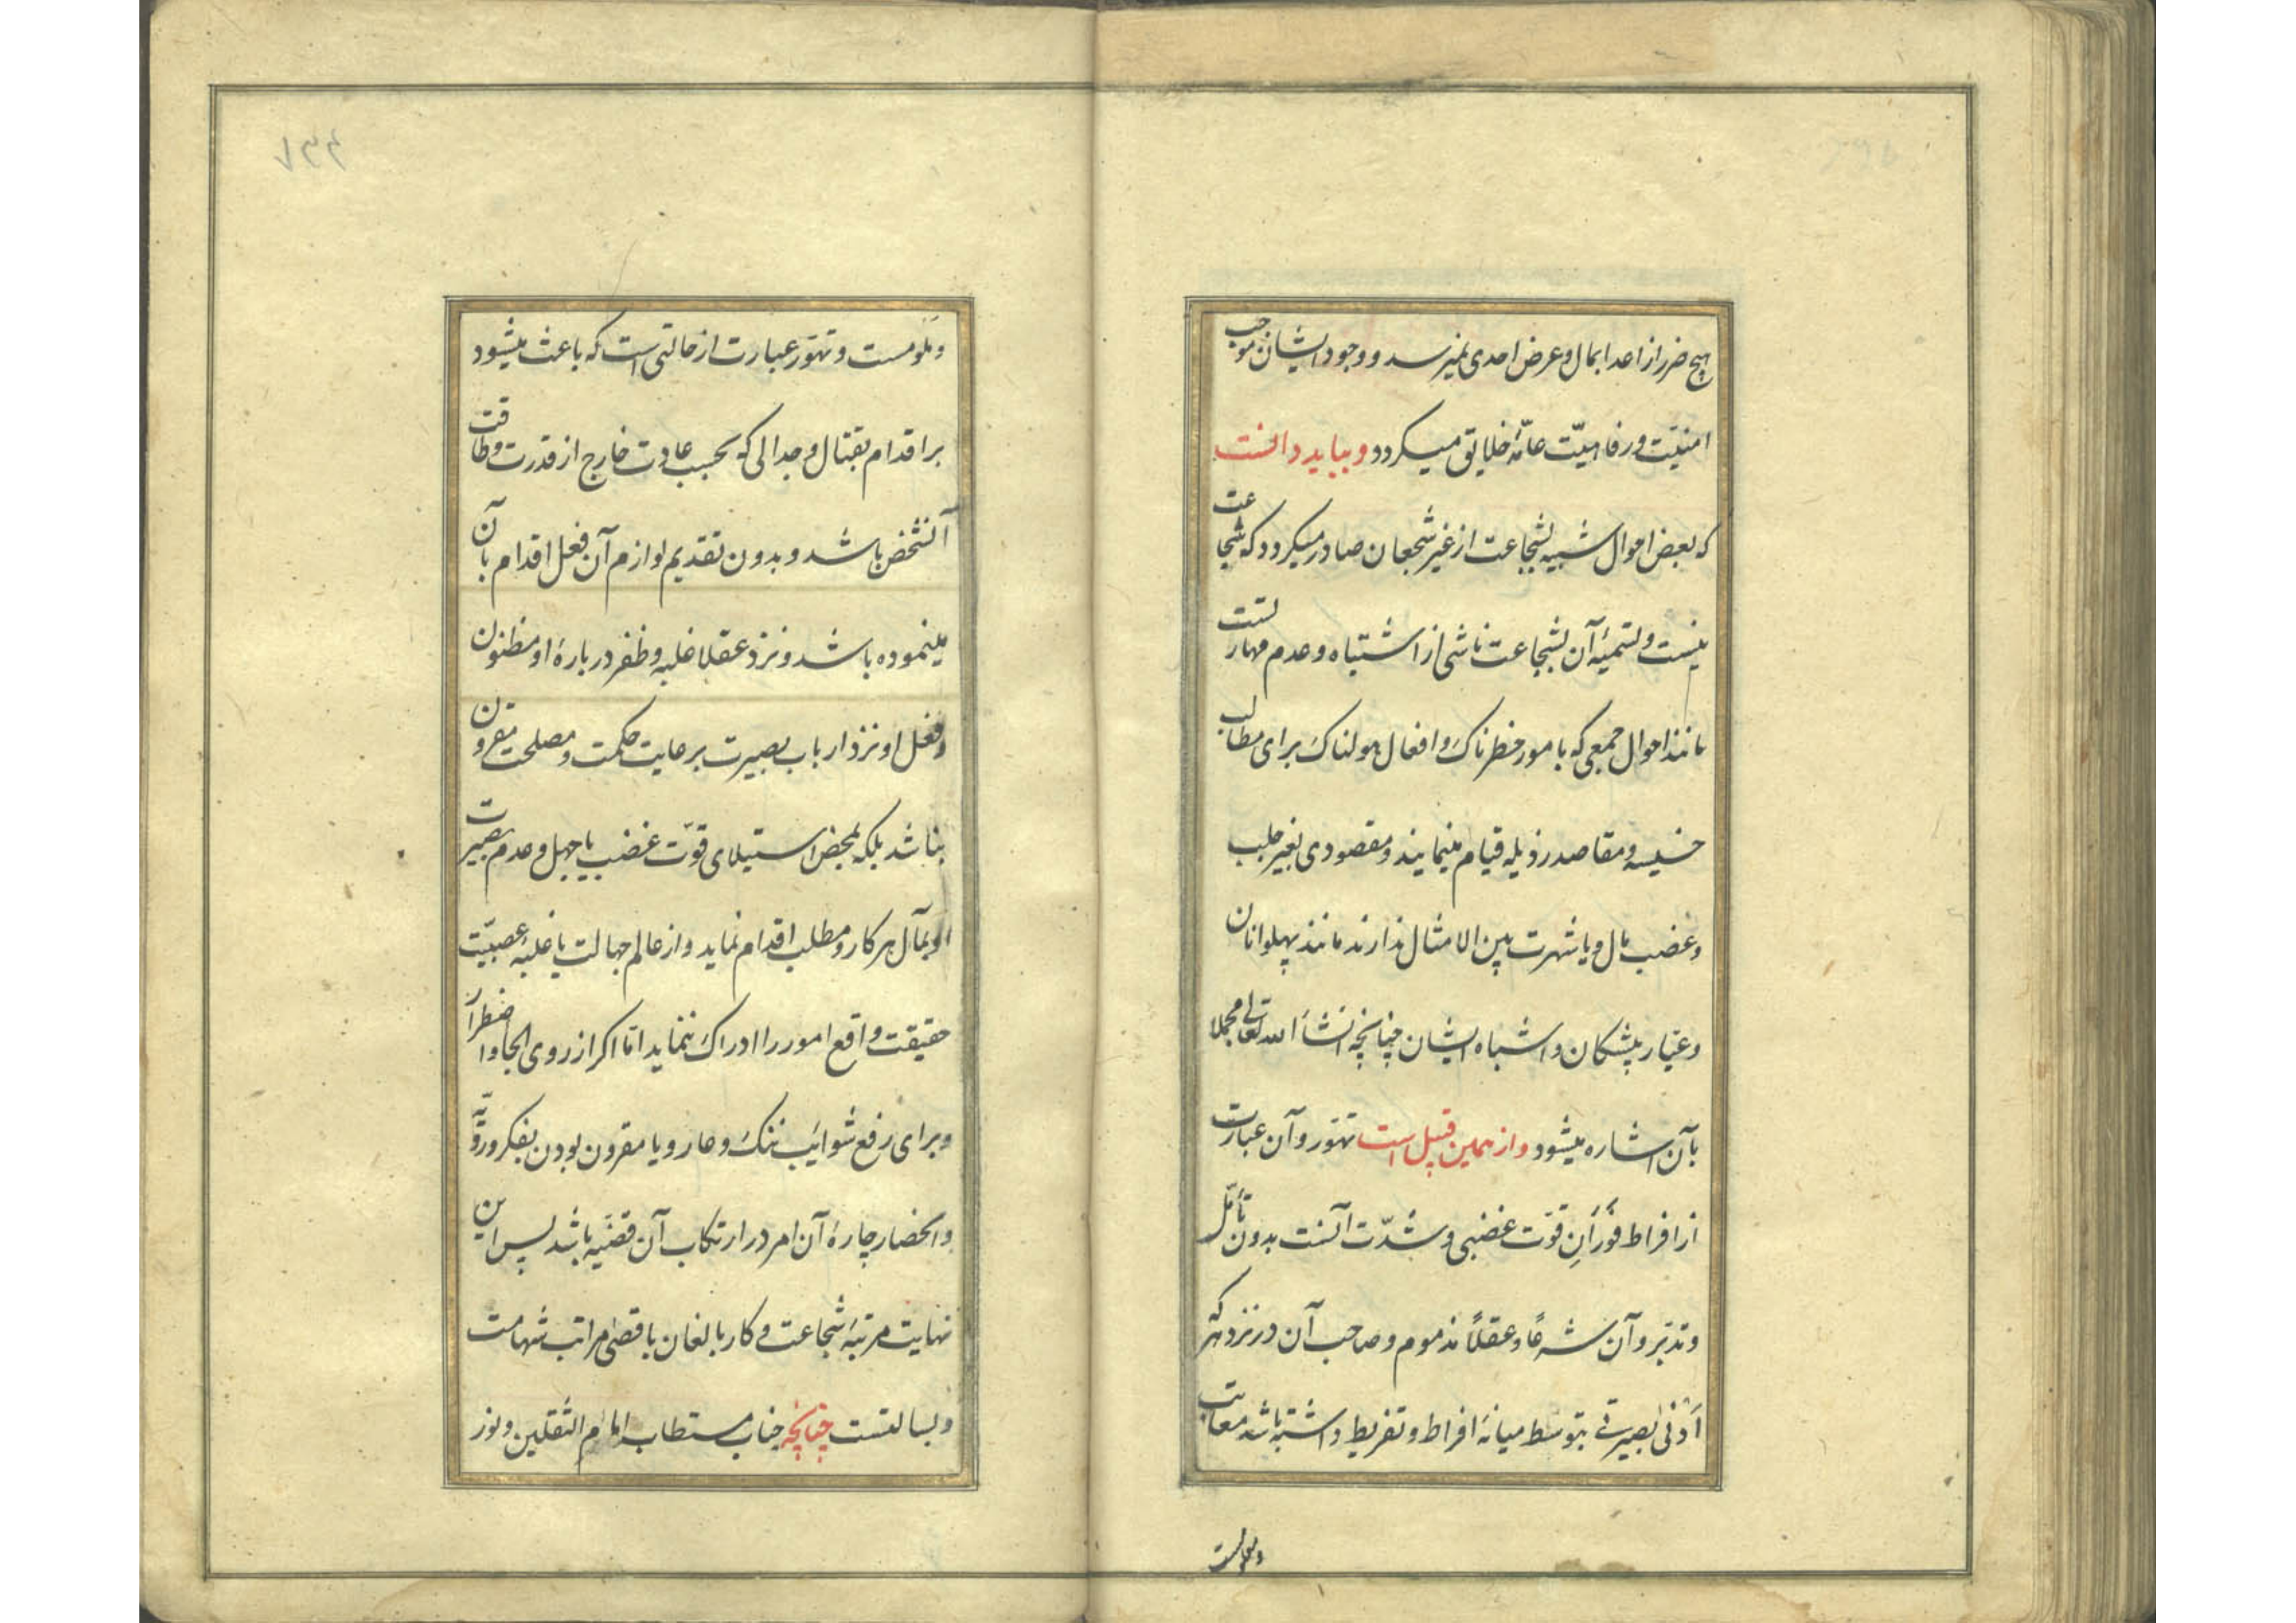 هیچ ضرر از اعدا بمال و عرض احدی نمیرسد و وجود ایشان موجب
امنیّت و رفاهیّت عامّهٔ خلایق میکردد و بباید دانست
که بعض احوال شبیه بشجاعت از غیر شجعان صادر میکردد که شجاعت
نیست و تسمیهٔ آن بشجاعت ناشی از اشتباه و عدم مهارتست
مانند احوال جمعی که بامور خطرناک و افعال هولناک برای مطالب
خسیسه و مقاصد رذیله قیام مینمایند و مقصودی بغیر جلب
و غضب مال و یا شهرت بین الامثال ندارند مانند پهلوانان
و عیّار پیشکان و اشباه ایشان چنانچه انشأ الله تعالی مجملا
بآن اشاره میشود و از همین قبیل است تهوّر و آن عبارت
از افراط فَوَرَانِ قوّت غضبی و شدّت آنست بدون تأمّل
و تدبّر و آن شرعًا و عقلًا مذموم و صاحب آن در نزد هر که
اَدْنیٰ بصیرتی بتوسّط میانهٔ افراط و تفریط داشته باشد معاتب
و ملومست
و ملومست و تهوّر عبارت از حالتی است که باعث میشود
بر اقدام بقتال و جدالی که بحسب عادت خارج از قدرت و طاقت
آنشخص باشد و بدون تقدیم لوازم آن فعل اقدام بآن
مینموده باشد و نزد عقلا غلبه و ظفر دربارهٔ او مظنون
و فعل او نزد ارباب بصیرت برعایت حکمت و مصلحت مقرون
نباشد بلکه بمحض استیلای قوّت غضب یا جهل و عدم بصیرت
او بمآل هر کار و مطلب اقدام نماید و از عالم جهالت یا غلبهٔ عصبیّت
حقیقت واقع امور را ادراک ننماید امّا اکر از روی الجا و اضطرار
و برای رفع شوایب ننک و عار و یا مقرون بودن بفکر و رویّه
و انحصار چارهٔ آن امر در ارتکاب آن قضیّه باشد پس این
نهایت مرتبهٔ شجاعت و کار بالغان باقصیٰ مراتب شهامت
و بسالتست چنانچه جناب مستطاب امام الثقلین و نور